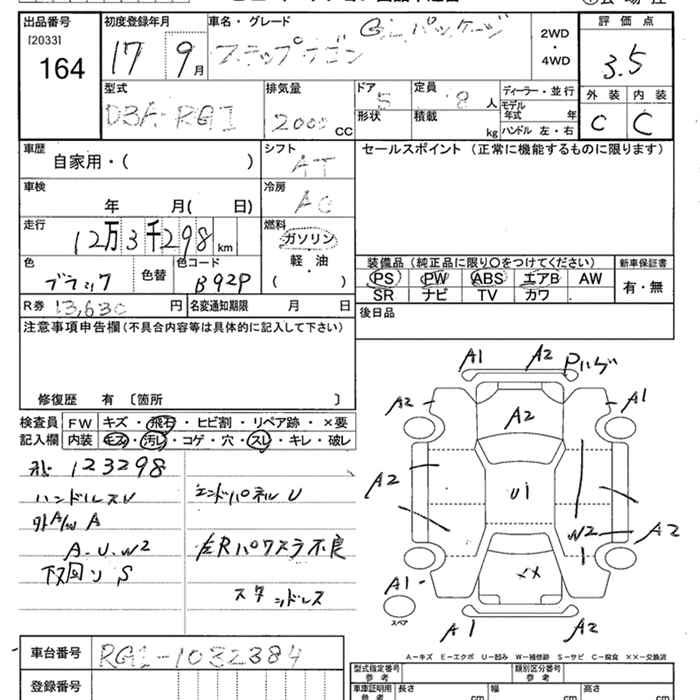 出品番号
[2033]
164
初度登録年月
17 9月
車名・グレード
ステップワゴン Gーレパッケージ
2WD
・
4WD
評価点
3.5
外装 内装
C C
型式
DBA-RG1
排気量
2000 CC
ドア
5
形状
定員
8 人
積載
kg
ディーラー・並行
モデル年式 年
ハンドル 左・右
車歴
自家用・( )
シフト
AT
セールスポイント(正常に機能するものに限ります)
車検
年 月( 日)
冷房
AC
走行
12万3千298 km
燃料
ガソリン
軽・油
( )
色
ブラック
色替
色コード
B92P
装備品(純正品に限り○をつけてください)
PS PW ABS エアB AW
SR ナビ TV カワ
新車保証書
有・無
R券 13,630 円
名変通知期限 月 日
後日品
注意事項申告欄(不具合内容等は具体的に記入して下さい)
修復歴 有 〔箇所 〕
検査員
記入欄
FW キズ・飛石・ヒビ割・リペア跡・×要
内装 キズ・汚レ・コゲ・穴・スレ・キレ・破レ
123298
ハンドルスレ
外A/W A
A・U・W2
下回リ S
エンドパネル U
左Rパワスラ不良
スタンドレス
A1 A2 Pハゲ
A2 A1
A2
A2 U1
W2 A2
XX
A1
スペア
A1 A2
A-キズ E-エクボ U-凹み W-補修跡 S-サビ C-腐食 ××-交換済
車台番号 RG1-1032384
登録番号
型式指定番号
参考
類別区分番号
参考
車車証明用
参考
長さ cm 幅 cm 高さ cm